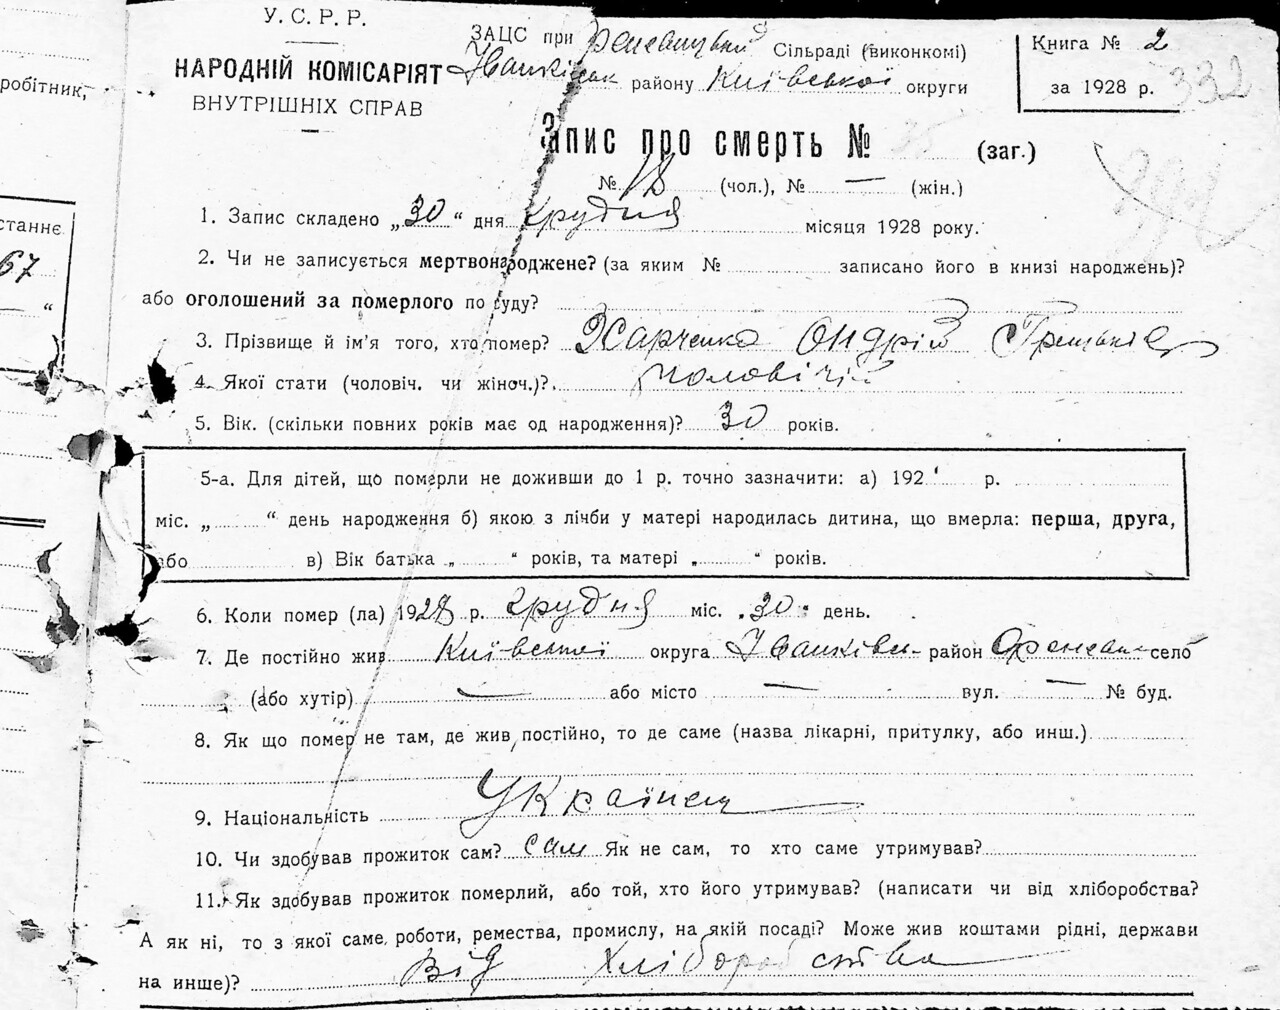 У.С.Р.Р.
НАРОДНІЙ КОМІСАРІЯТ
ВНУТРІШНІХ СПРАВ
ЗАЦС при Сільраді (виконкомі)
району Київської округи
Книга № 2
за 1928 р.
332
Запис про смерть № (заг.)
№ 18 (чол.), № — (жін.)
1. Запис складено „30“ дня грудня місяця 1928 року.
2. Чи не записується мертвонароджене? (за яким № записано його в книзі народжень)?
або оголошений за померлого по суду?
3. Прізвище й ім'я того, хто помер? Харченко Ондрій
4. Якої статі (чоловіч. чи жіноч.)? чоловічій
5. Вік. (скільки повних років має од народження)? 30 років.
5-а. Для дітей, що померли не доживши до 1 р. точно зазначити: а) 192 р.
міс. „ “ день народження б) якою з лічби у матері народилась дитина, що вмерла: перша, друга,
або в) Вік батька „ “ років, та матері „ “ років.
6. Коли помер (ла) 1928 р. грудня міс. „30“ день.
7. Де постійно жив Київської округа Іванківськ район село
(або хутір) — або місто — вул. — № буд.
8. Як що помер не там, де жив постійно, то де саме (назва лікарні, притулку, або инш.)
9. Національність Українец
10. Чи здобував прожиток сам? сам Як не сам, то хто саме утримував?
11. Як здобував прожиток померлий, або той, хто його утримував? (написати чи від хліборобства?
А як ні, то з якої саме роботи, ремества, промислу, на якій посаді? Може жив коштами рідні, держави
на инше)? Від хліборобства
робітник,
станнє
67
“